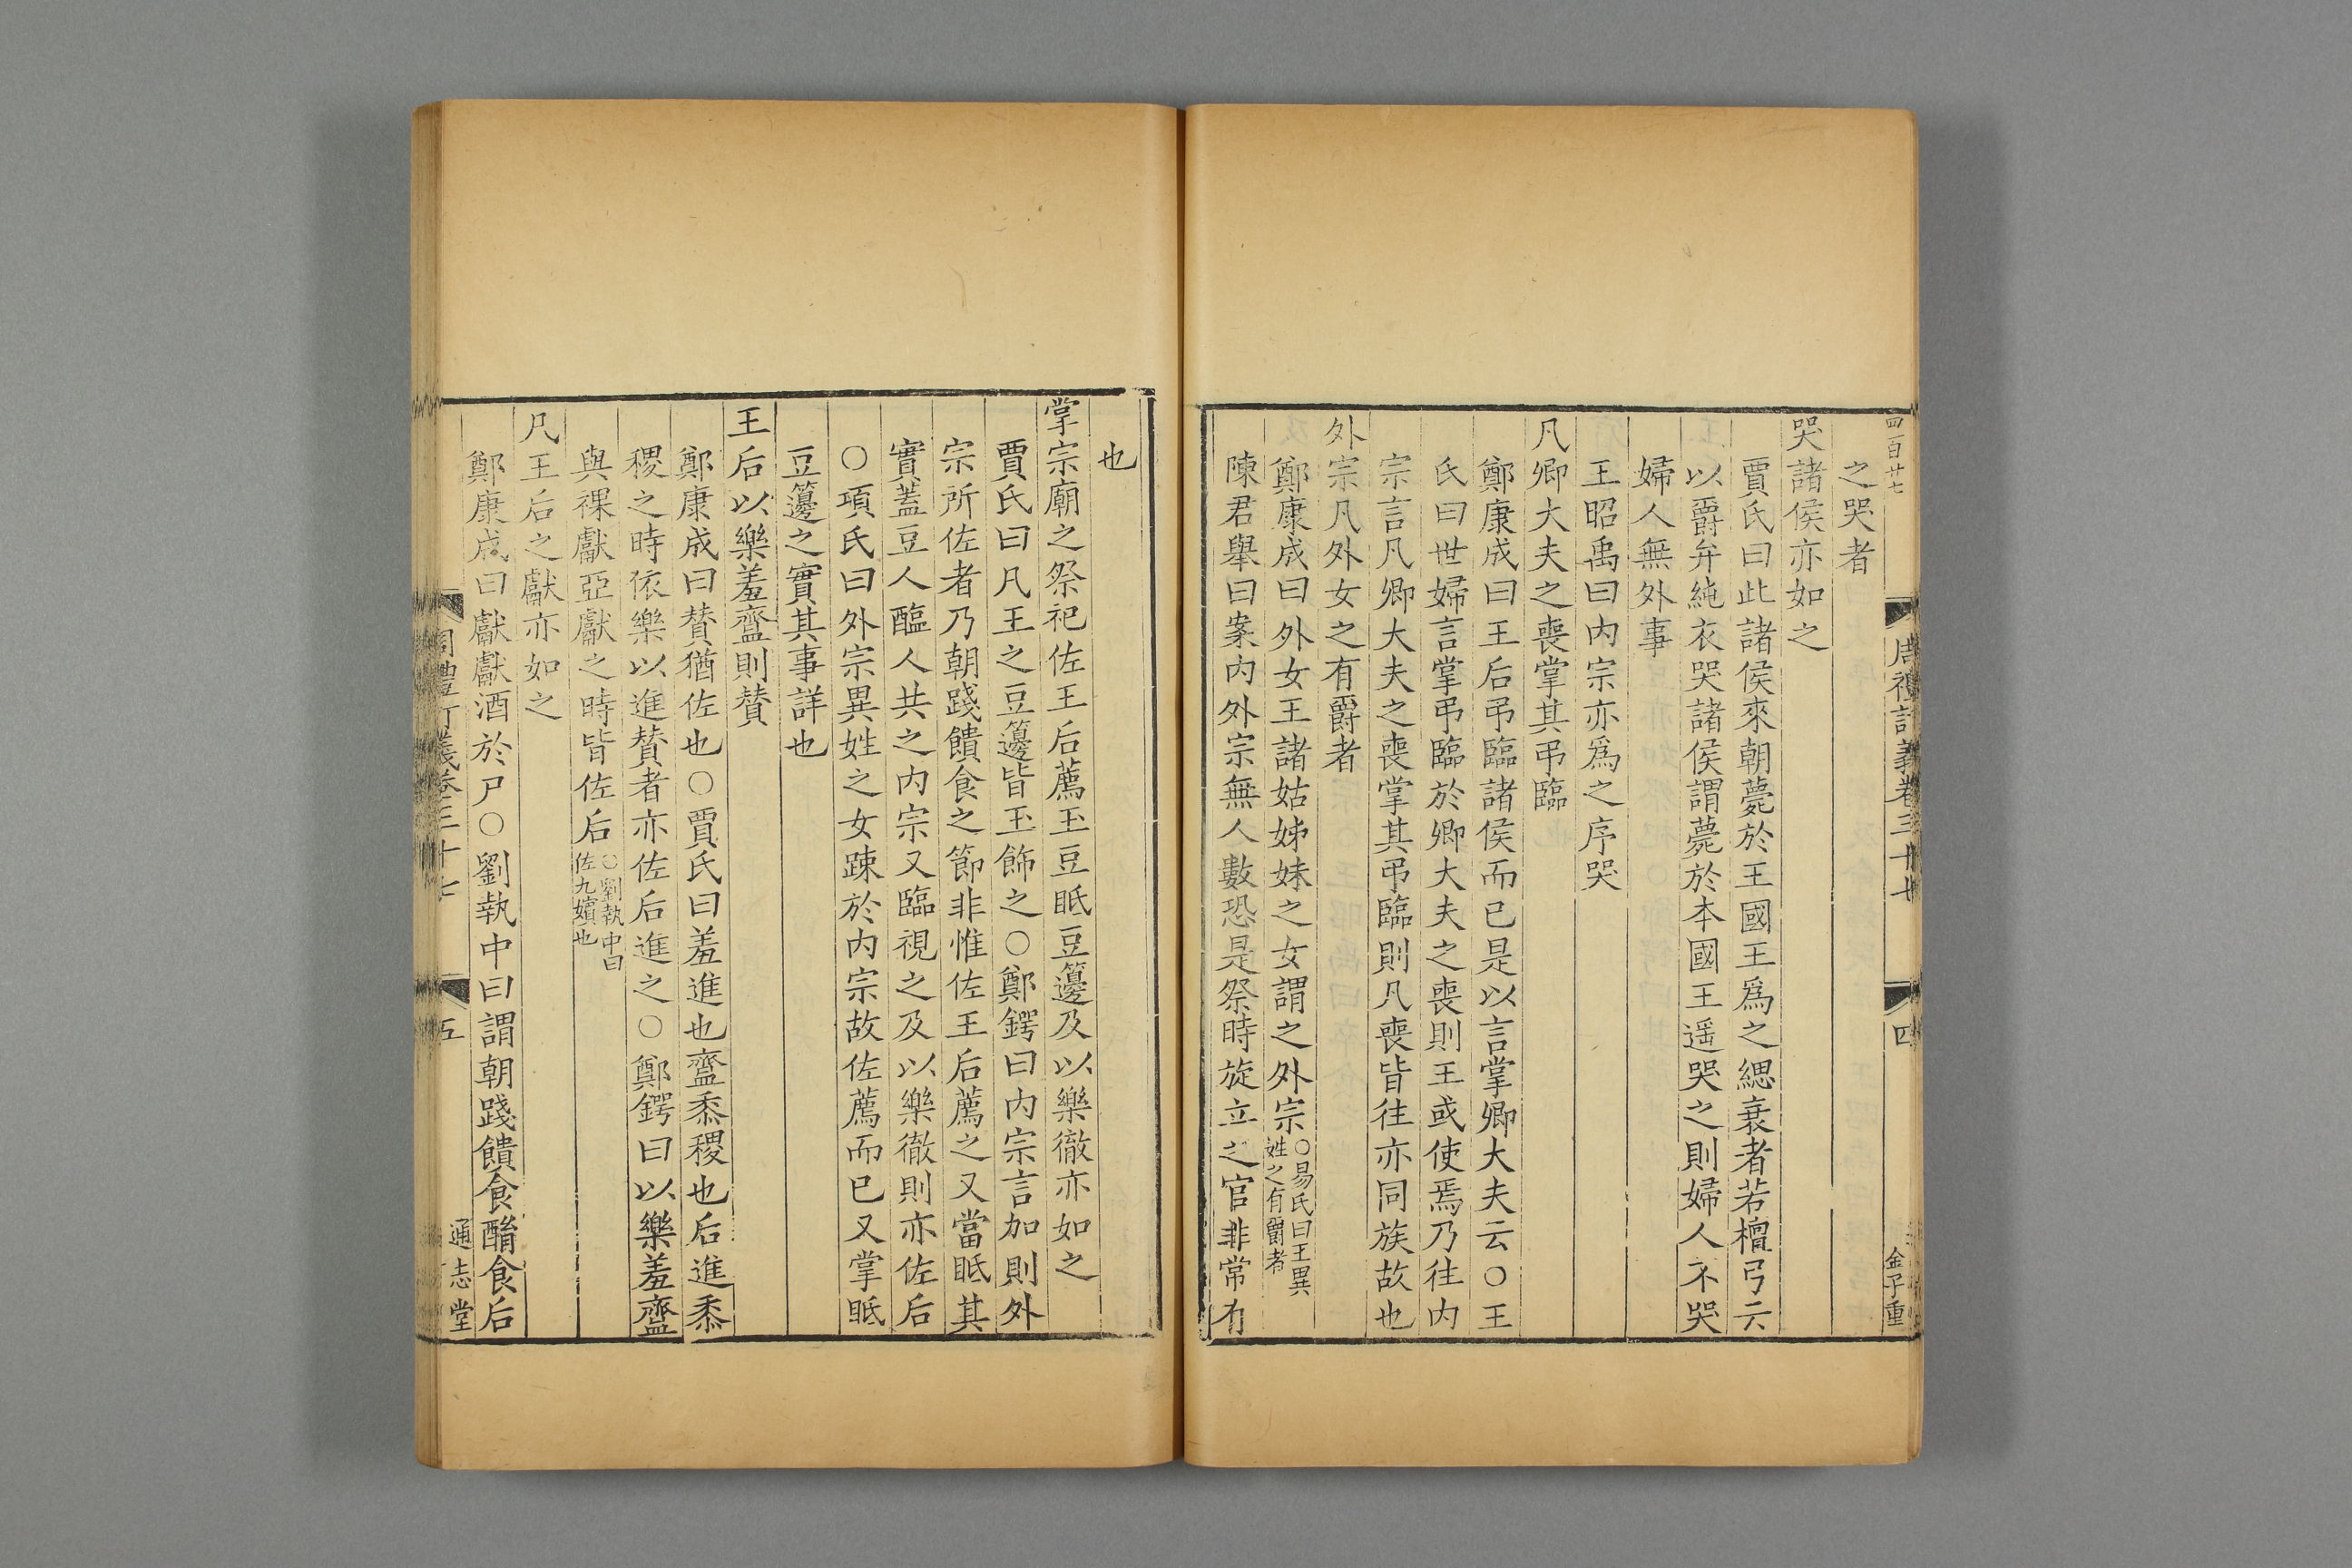 四百廿七
周禮訂義卷三十七
四
金子重
之哭者
哭諸侯亦如之
賈氏曰此諸侯來朝薨於王國王爲之緦衰者若檀弓云
以爵弁純衣哭諸侯謂薨於本國王遥哭之則婦人不哭
婦人無外事
王昭禹曰内宗亦爲之序哭
凡卿大夫之喪掌其弔臨
鄭康成曰王后弔臨諸侯而已是以言掌卿大夫云○王
氏曰世婦言掌弔臨於卿大夫之喪則王或使焉乃往内
宗言凡卿大夫之喪掌其弔臨則凡喪皆往亦同族故也
外宗凡外女之有爵者
鄭康成曰外女王諸姑姊妹之女謂之外宗○易氏曰王異姓之有爵者
陳君舉曰案内外宗無人數恐是祭時旋立之官非常有
也
掌宗廟之祭祀佐王后薦玉豆眡豆籩及以樂徹亦如之
賈氏曰凡王之豆籩皆玉飾之○鄭鍔曰内宗言加則外
宗所佐者乃朝踐饋食之節非惟佐王后薦之又當眡其
實蓋豆人醢人共之内宗又臨視之及以樂徹則亦佐后
○項氏曰外宗異姓之女踈於内宗故佐薦而已又掌眡
豆籩之實其事詳也
王后以樂羞齍則賛
鄭康成曰賛猶佐也○賈氏曰羞進也齍黍稷也后進黍
稷之時依樂以進賛者亦佐后進之○鄭鍔曰以樂羞齍
與祼獻亞獻之時皆佐后○劉執中曰佐九嬪也
凡王后之獻亦如之
鄭康成曰獻獻酒於尸○劉執中曰謂朝踐饋食酳食后
周禮訂義卷三十七
五
通志堂